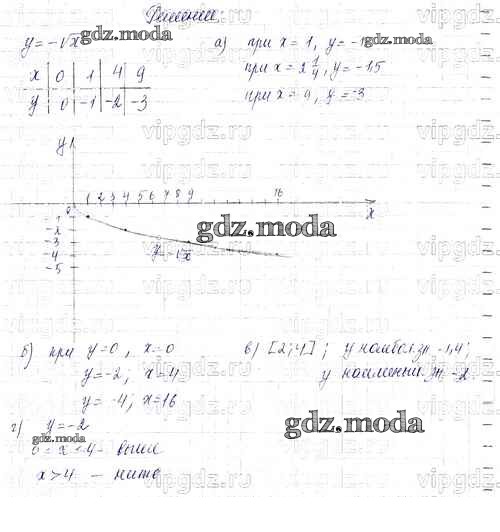 Решение
y = -√x
x 0 1 4 9
y 0 -1 -2 -3
а) при x = 1, y = -1
при x = 2 1/4, y = -1,5
при x = 9, y = -3
y
0 1 2 3 4 5 6 7 8 9 16 x
-1
-2
-3
-4
-5
y = -√x
б) при y = 0, x = 0
y = -2; x = 4
y = -4; x = 16
в) [2; 4]; y наибол. зн -1,4;
y наименьш. зн -2.
г) y = -2
0 ≤ x < 4 - выше
x > 4 - ниже
gdz.moda
gdz.moda
gdz.moda
gdz.moda
vipgdz.ru